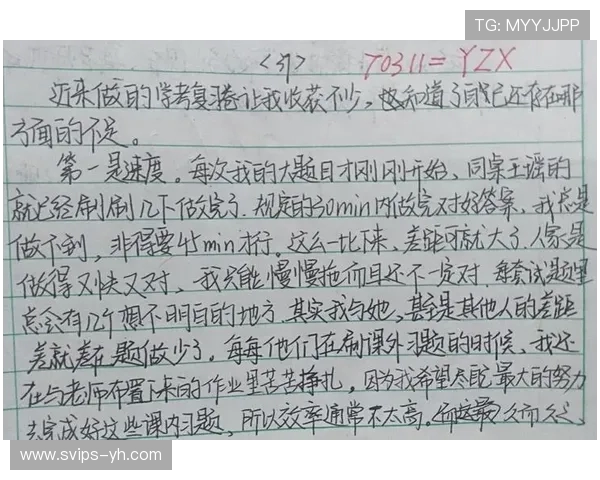 TG: MYYJJPP
<37> 70311=YZX
近来做的学考复习卷让我收获不少，也知道了自己还存在哪
方面的不足。
第一是速度。每次我的大题目才刚刚开始，同桌王谣的
就已经刷刷几下做完了。规定的30min内做完对好答案，我总是
做不到，非得要45min才行。这么一比下来，差距可就大了。人家是
做得又快又对，我只能慢慢拖而且还不一定对。每套试题里
总会有几个想不明白的地方。其实我与她，甚至是其他人的差距
差就差在题做少了。每每他们在刷课外习题的时候，我还
在与老师布置下来的作业里苦苦挣扎。因为我希望尽自己最大的努力
去完成好这些课内习题，所以效率通常不太高。久而久之，
www.svips-yh.com